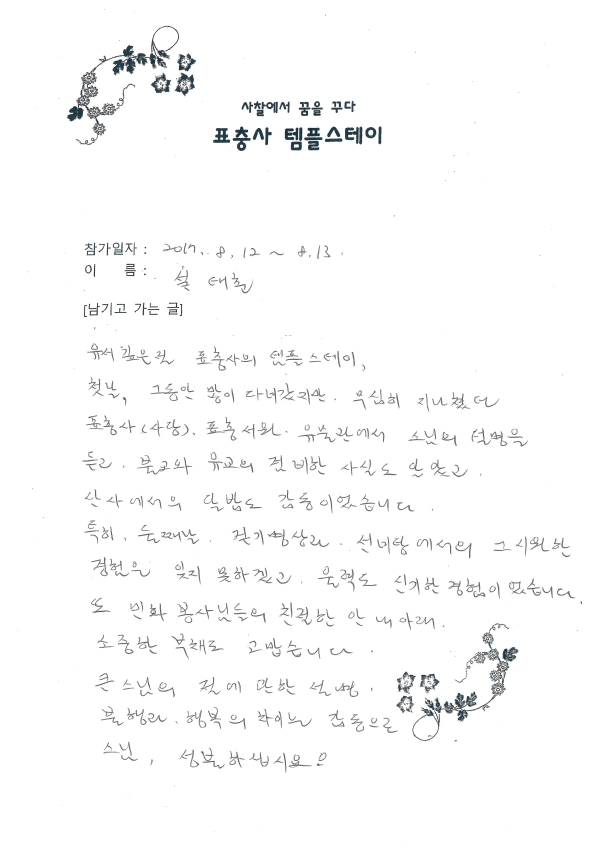 사찰에서 꿈을 꾸다
표충사 템플스테이
참가일자 : 2017. 8. 12 ~ 8. 13.
이 름 : 설 태환
[남기고 가는 글]
유서 깊은 절 표충사의 템플스테이,
첫날, 그동안 많이 다녀갔지만. 무심히 지나쳤던
표충사(사당). 표충서원. 유물관에서 스님의 설명을
듣고. 불교와 유교의 접비한 사실도 알았고.
산사에서의 달밤도 감동이었습니다.
특히, 둘째날. 걷기명상과. 선녀탕에서의 그 시원한
경험은 잊지 못하겠고. 울력도 신기한 경험이었습니다.
또 민화 봉사님들의 친절한 안내 아래.
소중한 부채도 고맙습니다.
큰스님의 절에 관한 설명.
불행과. 행복의 차이는 감동으로
스님, 성불하십시요